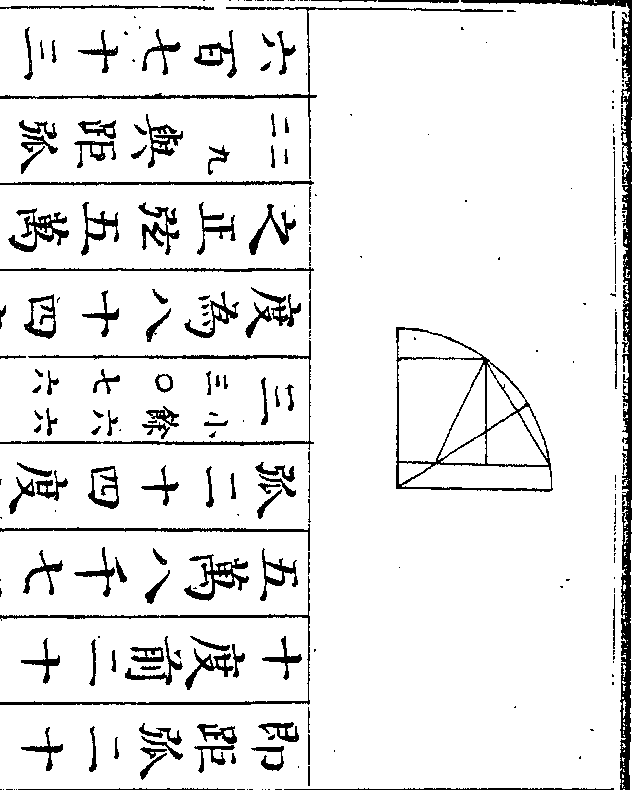 即距弧二十
十度前二十
五萬八千七
弧二十四度
三小餘六六三〇七六
度為八十四
之正弦五萬
二九二與距弧
六百七十三